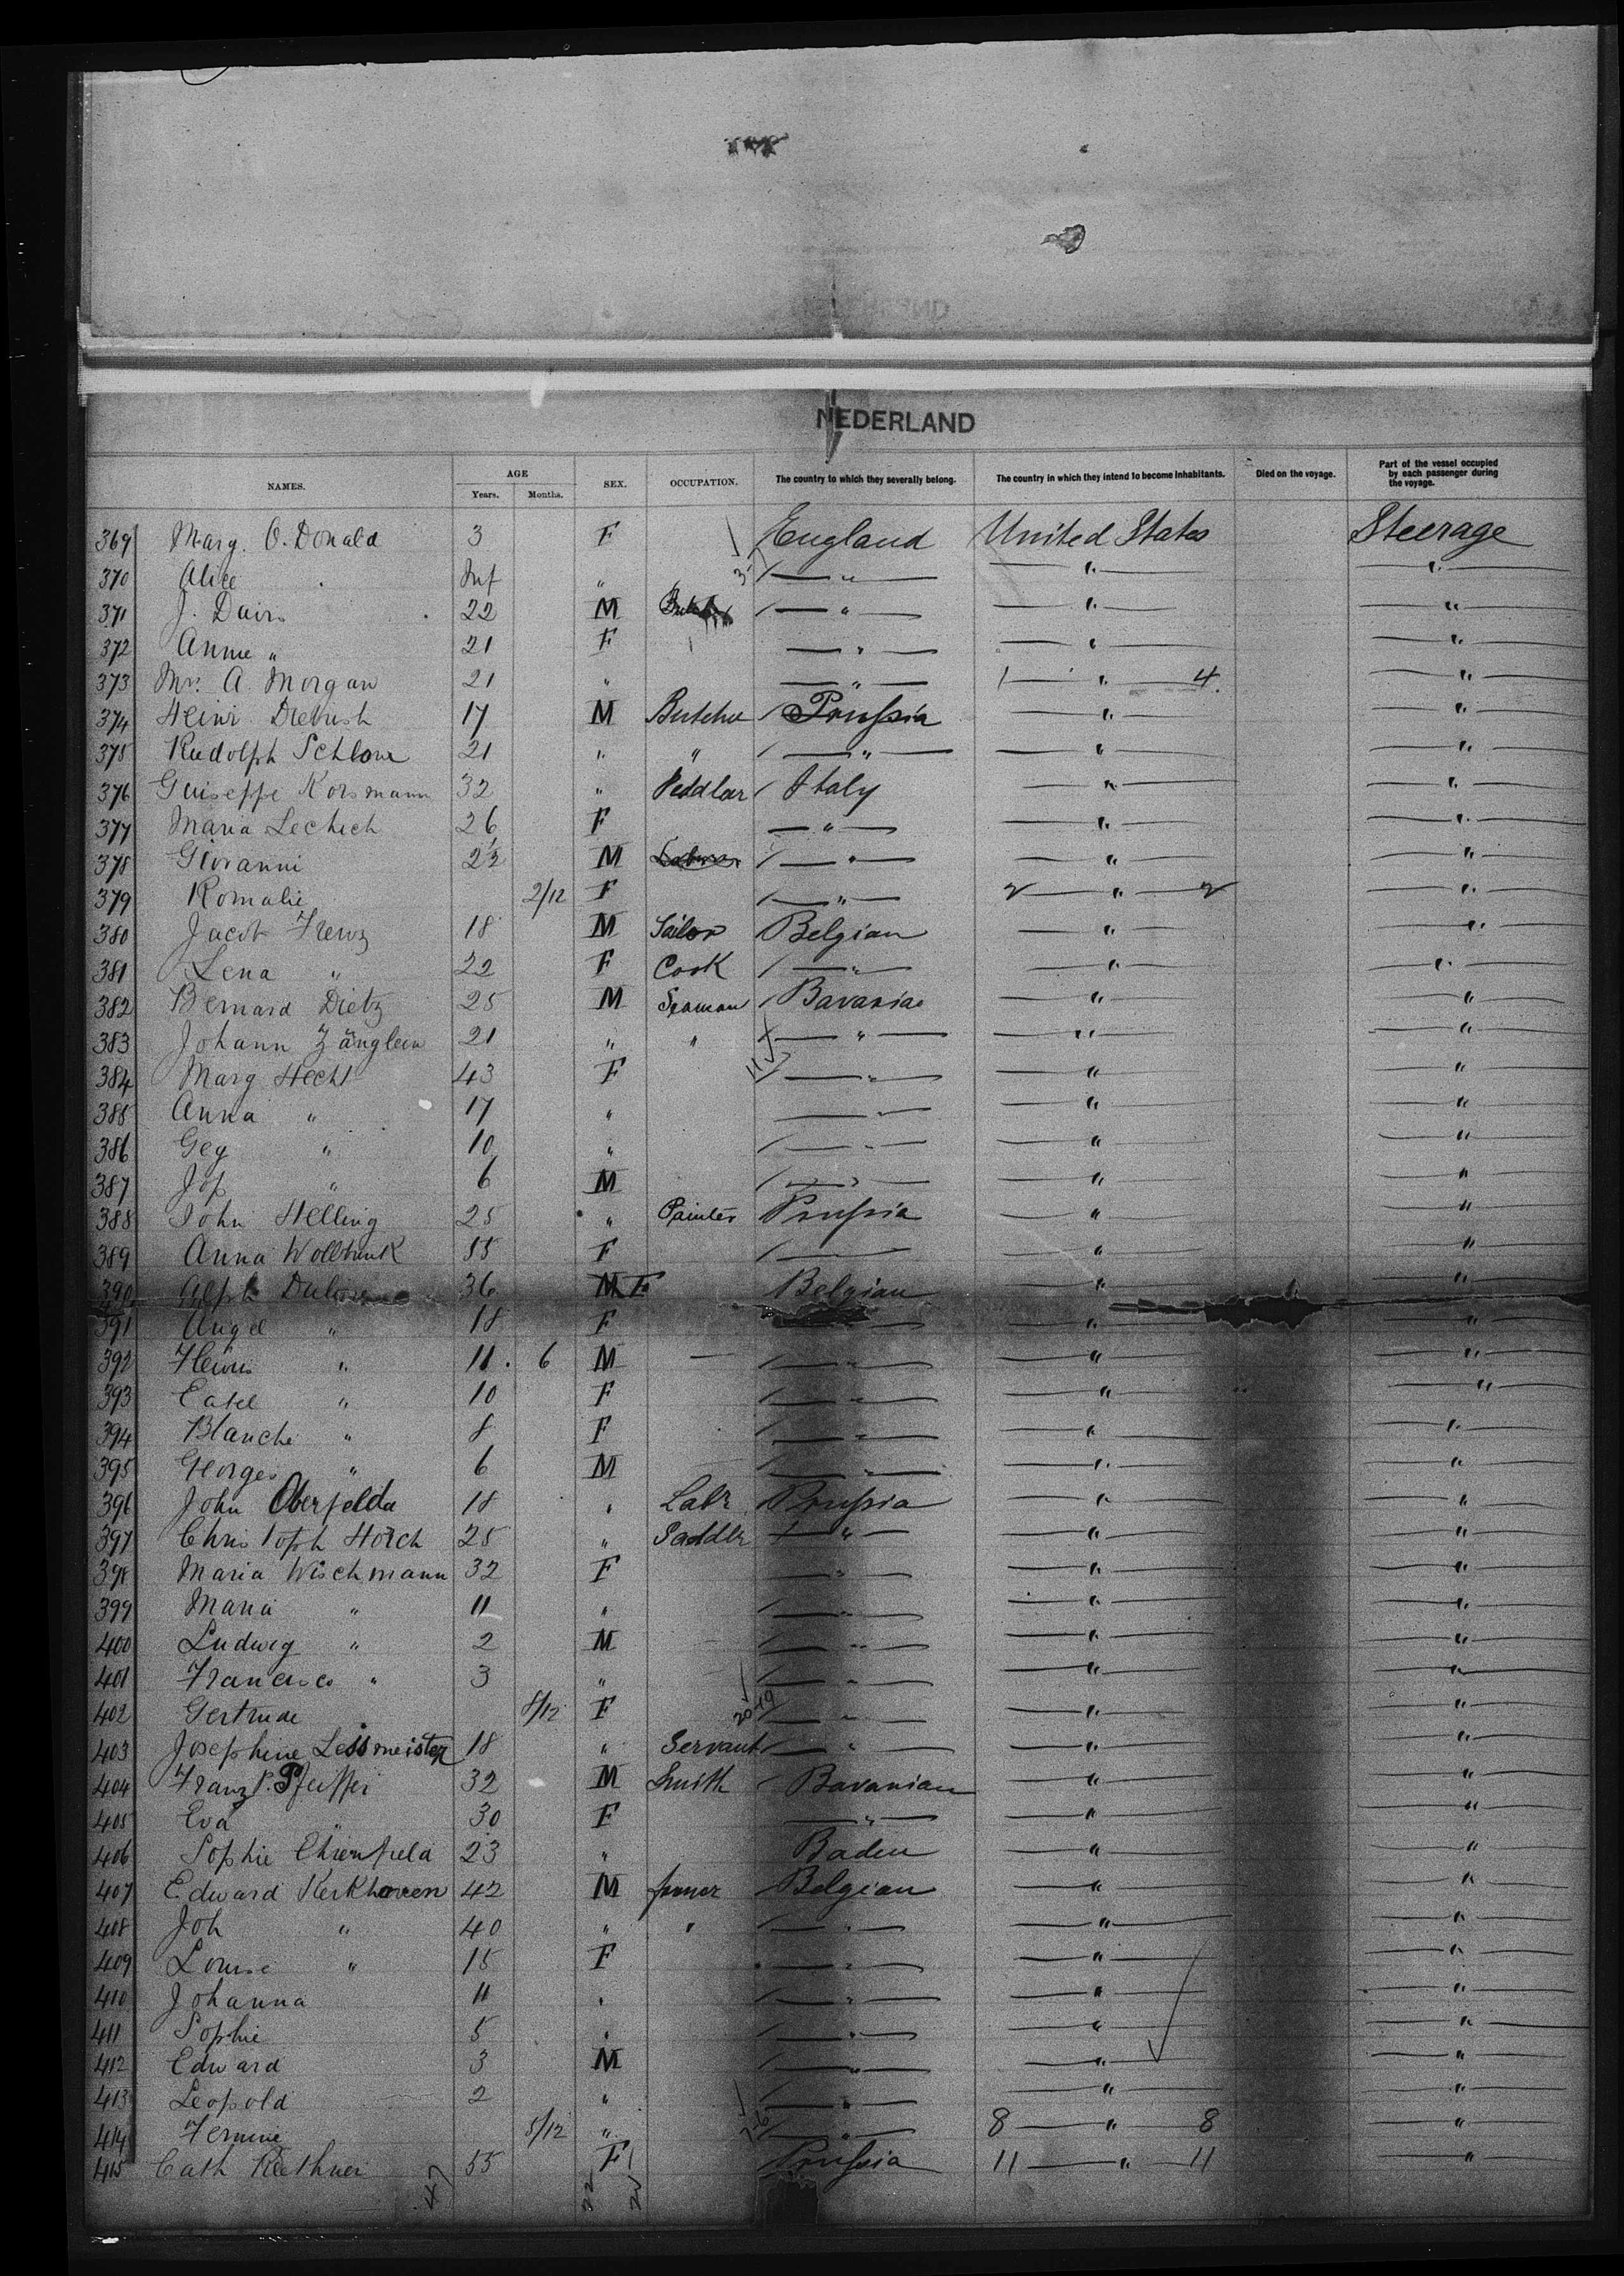 NEDERLAND
NAMES. AGE Years. Months. SEX. OCCUPATION. The country to which they severally belong. The country in which they intend to become inhabitants. Died on the voyage. Part of the vessel occupied by each passenger during the voyage.
369 Marg. O. Donald 3 F England United States Steerage
370 Alice Inf " " " "
371 J. 22 M " " "
372 Annie " 21 F " " "
373 Mrs. A. Morgan 21 " " 1 " 4 "
374 Heinr 17 M Butcher Prussia " "
375 Rudolph 21 " " " " "
376 Guiseppe Korsmann 32 " Peddlar Italy " "
377 Maria Lechich 26 F " " "
378 Giovanni 23 M " " "
379 Romalie 2/12 F " 2 " 2 "
380 Jacob 18 M Sailor Belgian " "
381 Lena " 22 F Cook " " "
382 Bernard Dietz 25 M Seaman Bavaria " "
383 Johann Zänglein 21 " " " " "
384 Marg Hecht 43 F " " "
385 Anna " 17 " " " "
386 Geg " 10 " " " "
387 Jos " 6 M " " "
388 John Helling 25 " Painter Prussia " "
389 Anna 55 F " "
390 Alph 36 M F Belgian " "
391 Angel " 18 F " " "
392 " 11 6 M " " "
393 " 10 F " " "
394 Blanche " 8 F " " "
395 Georges " 6 M " " "
396 John Oberfelda 18 " Labr Prussia " "
397 Christoph Horch 25 " Saddlr " " "
398 Maria Wischmann 32 F " " "
399 Maria " 11 " " " "
400 Ludwig " 2 M " " "
401 Francisco " 3 " " " "
402 Gertrude 8/12 F " " "
403 Josephine Lessmeister 18 " Servant " " "
404 Franz P. Pfeiffer 32 M Smith Bavarian " "
405 Eva " 30 F " " "
406 Sophie 23 " Baden " "
407 Edward Kerkhoven 42 M Belgian " "
408 Joh " 40 " " " " "
409 Louise " 15 F " " "
410 Johanna 11 " " " "
411 Sophie 5 " " " "
412 Edward 3 M " " "
413 Leopold 2 " " " "
414 " " 8 " 8 "
415 Cath 55 F Prussia 11 " 11 "
47 22